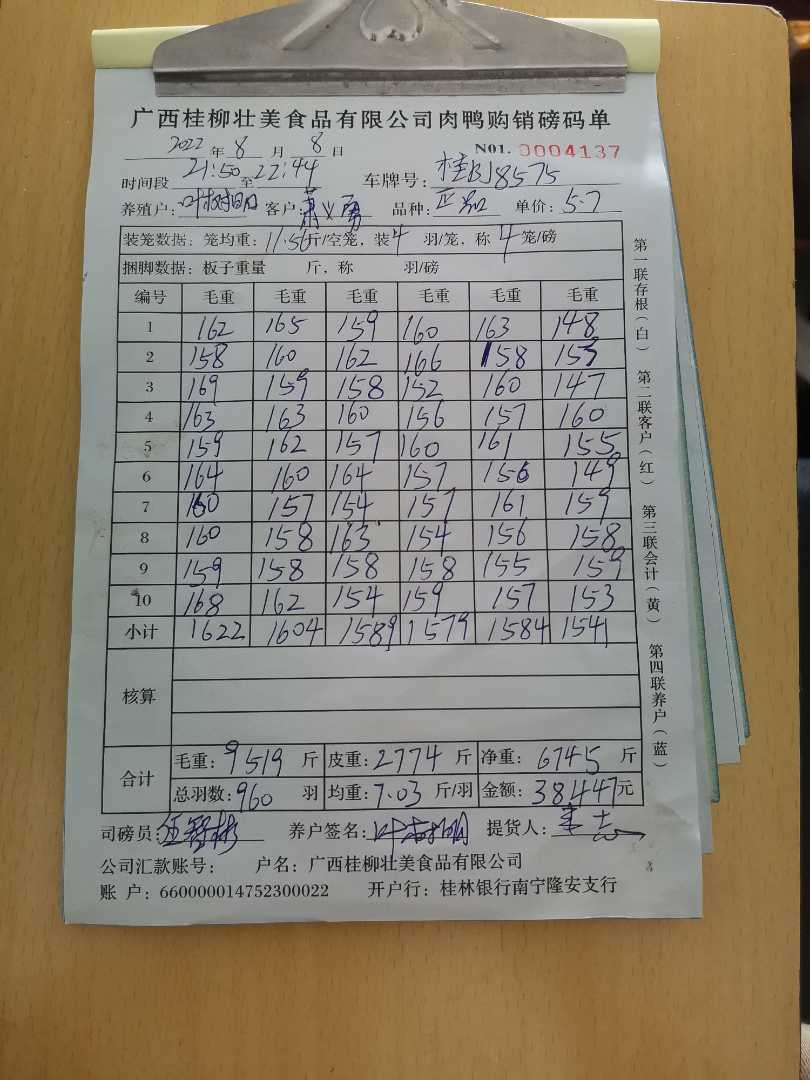 广西桂柳壮美食品有限公司肉鸭购销磅码单
2022 年 8 月 8 日 N01. 0004137
时间段 21:50 至 22:44 车牌号: 桂BJ8575
养殖户: 叶树明 客户: 萧义勇 品种: 正品 单价: 5.7
装笼数据: 笼均重: 11.56 斤/空笼, 装 4 羽/笼, 称 4 笼/磅
捆脚数据: 板子重量 斤, 称 羽/磅
编号 毛重 毛重 毛重 毛重 毛重 毛重
1 162 165 159 160 163 148
2 158 160 162 166 158 153
3 169 159 158 152 160 147
4 163 163 160 156 157 160
5 159 162 157 160 161 155
6 164 160 164 157 156 149
7 160 157 154 157 161 159
8 160 158 163 154 156 158
9 159 158 158 158 155 159
10 168 162 154 159 157 153
小计 1622 1604 1589 1579 1584 1541
核算
合计 毛重: 9519 斤 皮重: 2774 斤 净重: 6745 斤
总羽数: 960 羽 均重: 7.03 斤/羽 金额: 38447 元
司磅员: 养户签名: 叶树明 提货人:
公司汇款账号: 户名: 广西桂柳壮美食品有限公司
账 户: 660000014752300022 开户行: 桂林银行南宁隆安支行
第一联存根(白) 第二联客户(红) 第三联会计(黄) 第四联养户(蓝)